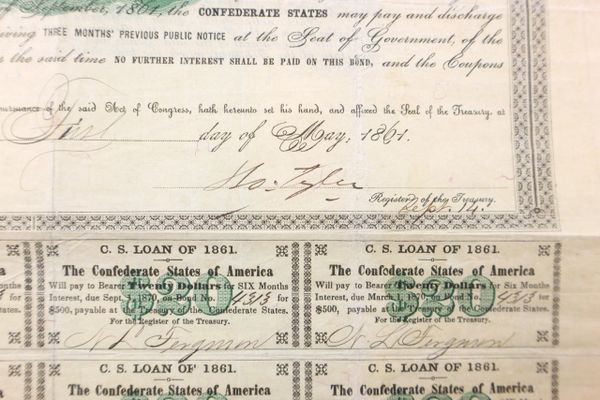 September, 1861, the CONFEDERATE STATES may pay and discharge
THREE MONTHS' PREVIOUS PUBLIC NOTICE at the Seat of Government, of the
the said time NO FURTHER INTEREST SHALL BE PAID ON THIS BOND, and the Coupons
of the said Act of Congress, hath hereunto set his hand, and affixed the Seal of the Treasury, at
First day of May, 1861.
Tyler
Register of the Treasury.
Sept. 14.
C. S. LOAN OF 1861. C. S. LOAN OF 1861.
The Confederate States of America The Confederate States of America
Will pay to Bearer Twenty Dollars for SIX Months Will pay to Bearer Twenty Dollars for Six Months
Interest, due Sept. 1, 1870, on Bond No. 4313 for Interest, due March 1, 1870, on Bond No. 4313 for
$500, payable at the Treasury of the Confederate States. $500, payable at the Treasury of the Confederate States.
For the Register of the Treasury. For the Register of the Treasury.
Ferguson Ferguson
C. S. LOAN OF 1861. C. S. LOAN OF 1861.
The Confederate States of America The Confederate States of America